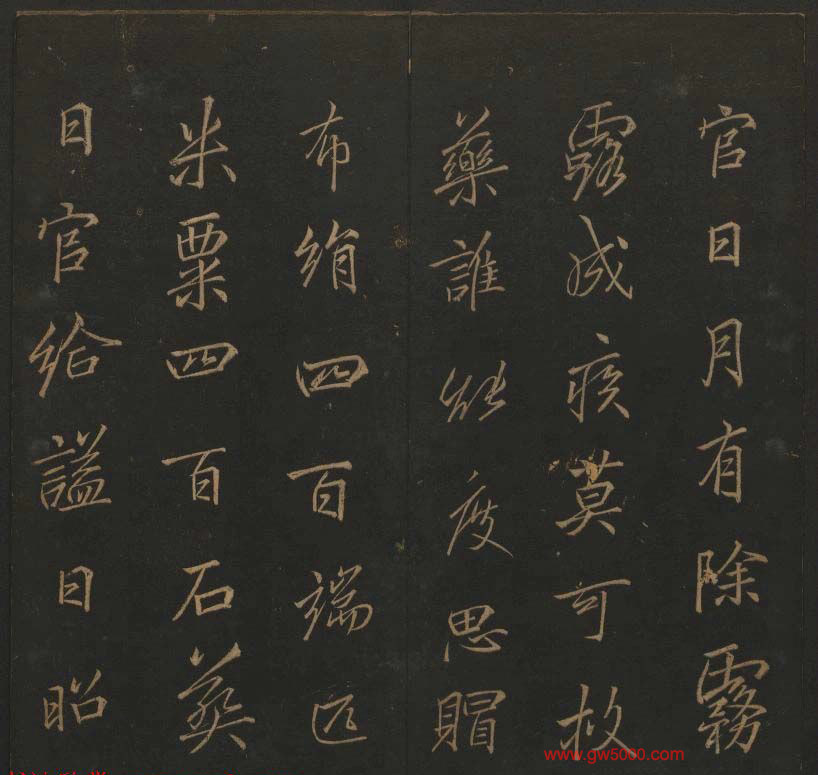 官日月有除霧
露成疾莫可救
藥誰能度思賵
布絹四百端匹
米粟四百石葬
日官給謚曰昭
www.gw5060.com